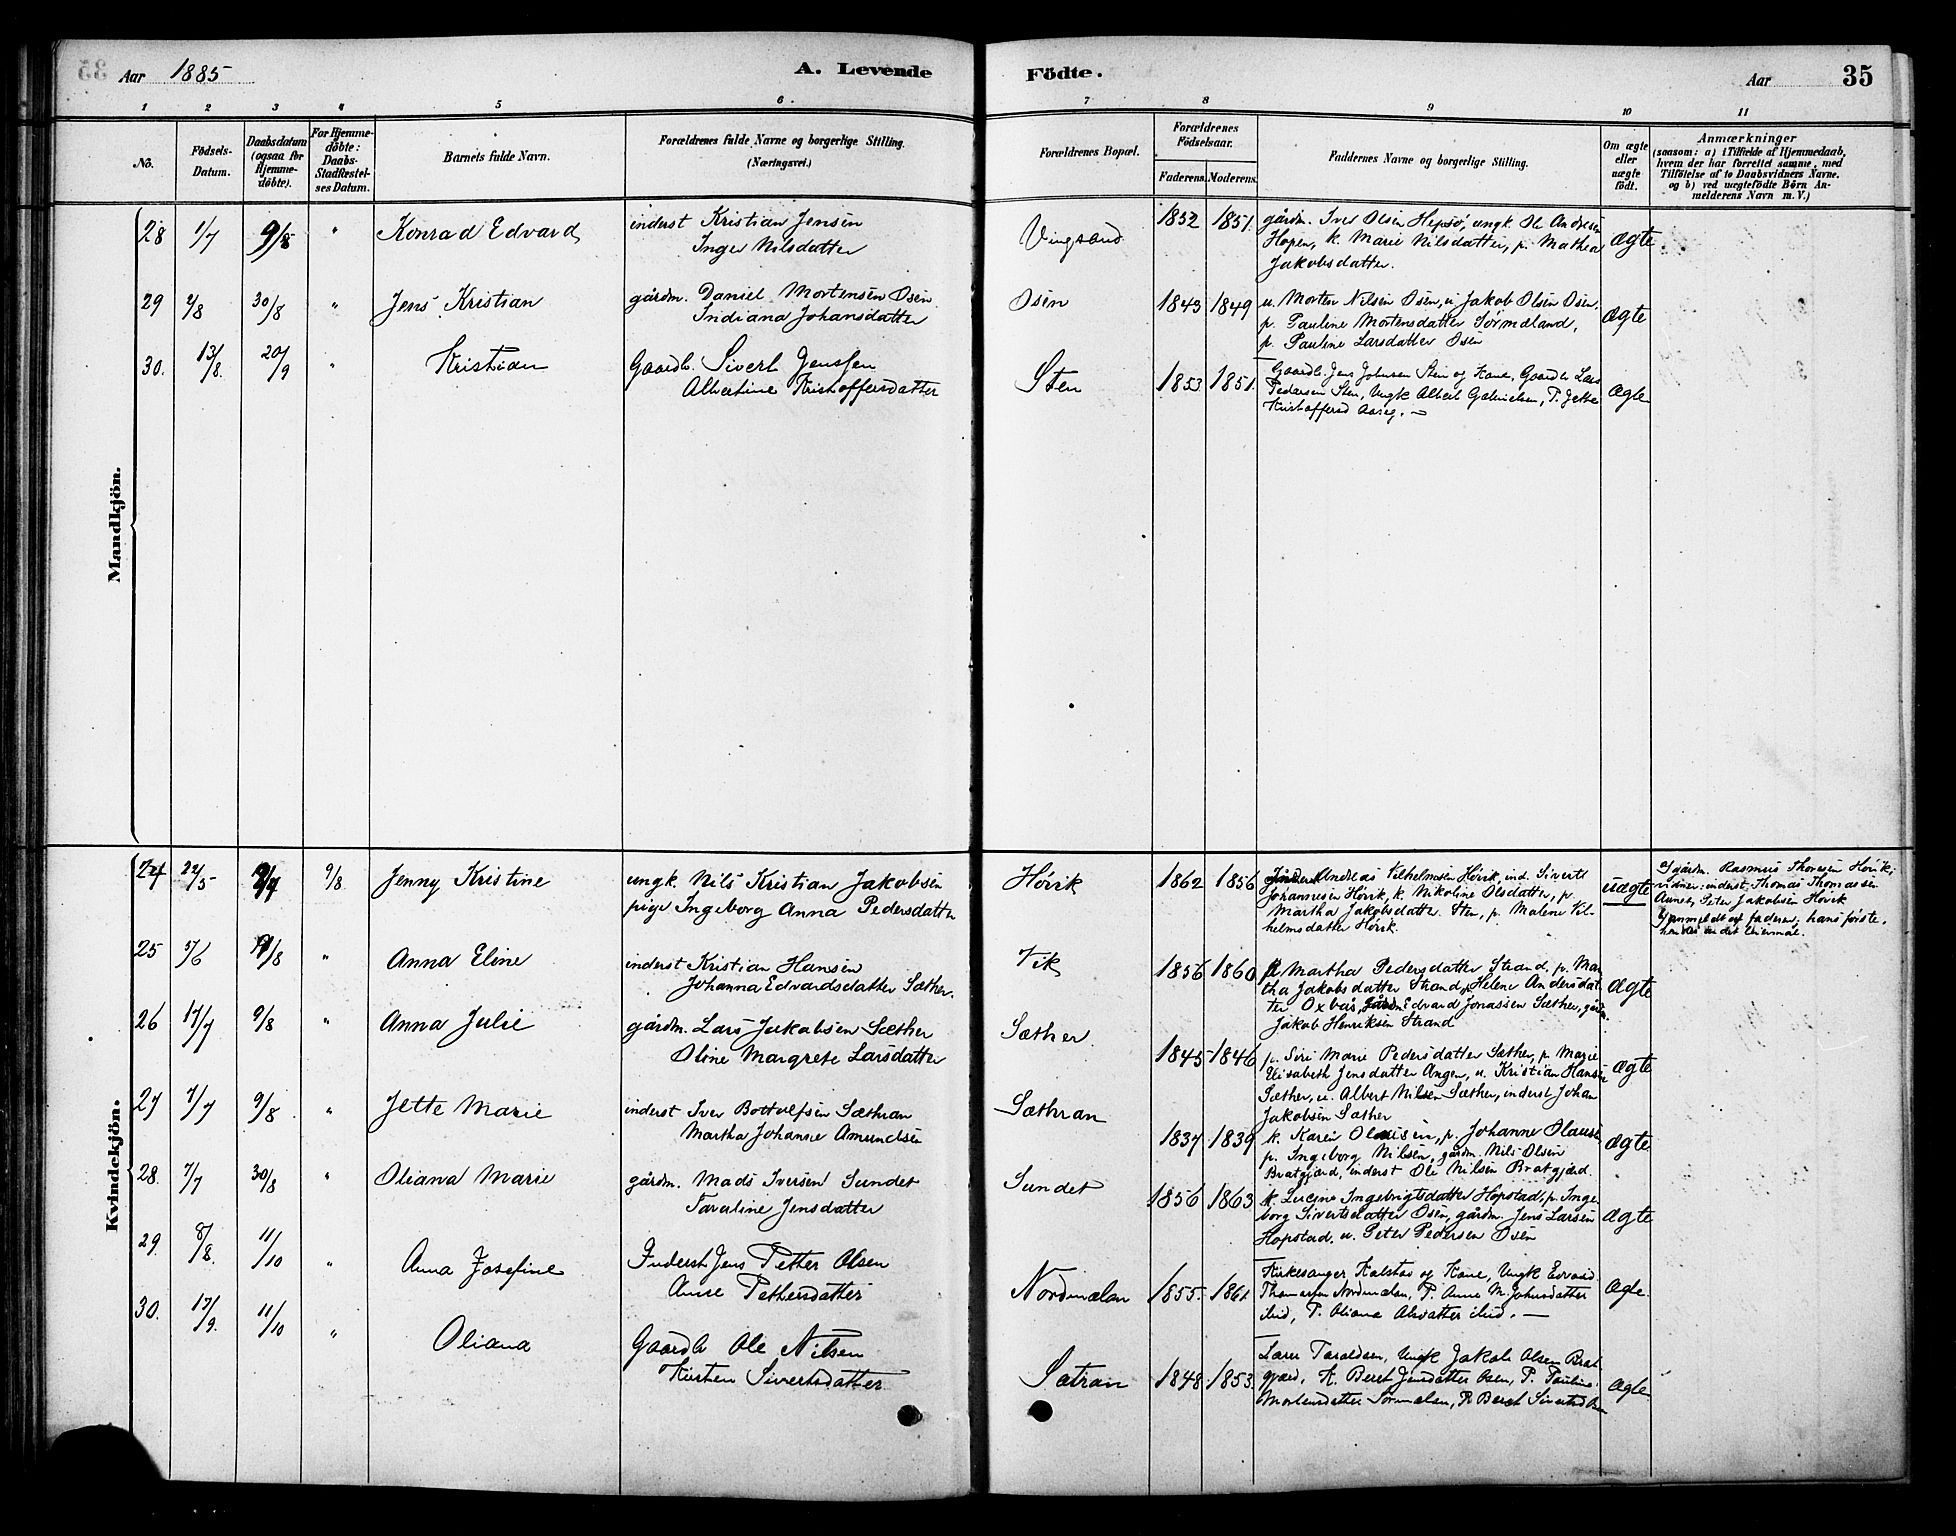 Aar 1885
A. Levende
Födte.
Aar
35
1 2 3 4 5 6. 7 8 9 10 11
Nò.
Födsels-Datum.
Daabsdatum (ogsaa for Hjemme-döbte).
For Hjemme-döbte: Daabs-Stadfæstel-ses Datum.
Barnets fulde Navn.
Forældrenes fulde Navne og borgerlige Stilling. (Næringsvei.)
Forældrenes Bopæl.
Forældrenes Födselsaar.
Faderens. Moderens.
Faddernes Navne og borgerlige Stilling.
Om ægte eller uægte födt.
Anmærkninger
(saasom: a) i Tilfælde af Hjemmedaab, hvem der har forrettet samme, med Tilföielse af to Daabsvidners Navne. og b) ved uægtefödte Börn An-melderens Navn m. V.)
Mandkjön.
28 1/7 9/8 " Konrad Edvard
inderst Kristian Jensen
Inger Nilsdatter
Vingsand 1852 1851.
gårdm. Iver Olsen Hepsø, ungk. Ole Andresen
Hopen, k. Marie Nilsdatter, p. Mathea
Jakobsdatter.
ægte
29 2/8 30/8 " Jens Kristian
gårdm. Daniel Mortensen Osen
Indiana Johansdatter
Osen 1843 1849
u. Morten Nilsen Osen, u. Jakob Olsen Osen.
p. Pauline Mortensdatter Sørmeland,
p. Pauline Larsdatter Osen
ægte
30. 13/8. 20/9 " Kristian
Gaardb. Sivert Jenssen
Albertine Kristoffersdatter
Sten 1853 1851.
Gaardb. Jens Johnsen Sten og Kone, Gaardb Lars
Pedersen Sten, Ungk Albert Gabrielsen, P. Jette
Kristoffersd Aaseg. —
Ægte
Kvindekjön.
24 22/5 9/8 Jenny Kristine
ungk. Nils Kristian Jakobsen
pige Ingeborg Anna Pedersdatter
Hövik 1862 1856
Andreas Vilhelmsen Hövik, ind. Sivert
Johannesen Hövik, k. Nikoline Olsdatter, p.
Martha Jakobsdatter Sten, p. Malene Vil-
helmsdatter Hövik.
uægte
gårdm. Rasmus Thoresen Hövik;
vidner: inderst Thomas Thomassen
Aunet, Peter Jakobsen Hövik
anmeldt af faderen; hans første,
hendes andet leiermål.
25 3/6 9/8 " Anna Eline
inderst Kristian Hansen
Johanna Edvardsdatter Sæther.
Vik 1856 1860
Martha Pedersdatter Strand, p. Mar
tha Jakobsdatter Strand, Helene Andersdat-
ter Oxbås, Edvard Jonassen Sæther, gårdm.
Jakob Henriksen Strand
ægte
26 17/7 9/8 " Anna Julie
gårdm. Lars Jakobsen Sæther
Oline Margrete Larsdatter
Sæther. 1845 1846
p. Siri Marie Pedersdatter Sæther, p. Marie
Elisabeth Jensdatter Angen, u. Kristian Hansen
Sæther, u. Albert Nilsen Sæther, inderst Johan
Jakobsen Sæther
ægte
27 7/7 9/8 " Jette Marie
inderst Iver Bottolfsen Sæthran
Martha Johanne Amundsen
Sæthran 1837 1839
k. Karen Olausen, p. Johanne Olausen
p. Ingeborg Nilsen, gårdm. Nils Olsen
Bratgjærd, inderst Ole Nilsen Bratgjærd.
ægte
28. 7/7 30/8 " Oliana Marie
gårdm. Mads Iversen Sundet
Taraline Jensdatter
Sundet 1856 1863
k. Lucine Ingebrigtsdatter Hopstad, p. Inge-
borg Sivertsdatter Osen, gårdm. Jens Larsen
Hopstad, u. Peter Pedersen Osen
ægte
29. 8/8. 11/10 " Anna Josefine
Inderst Jens Petter Olsen
Anne Pettersdatter
Nordmælan 1855. 1861.
Kirkesanger Kalstad og Kone, Ungk Edvard
Thomassen Nordmelan, P. Anne M. Johnsdatter
ibid, P. Oliana Olsdatter ibid. —
Ægte.
30. 17/9. 11/10 " Oliana
Gaardb Ole Nilsen
Kirsten Sivertsdatter
Sætran 1848 1853.
Lærer Taraldsen, Ungk Jakob Olsen Brat
gjærd, K. Beret Jensdatter Osen, P. Pauline
Mortensdatter Sørmelan, P. Beret Sivertsd Osen
Ægte.